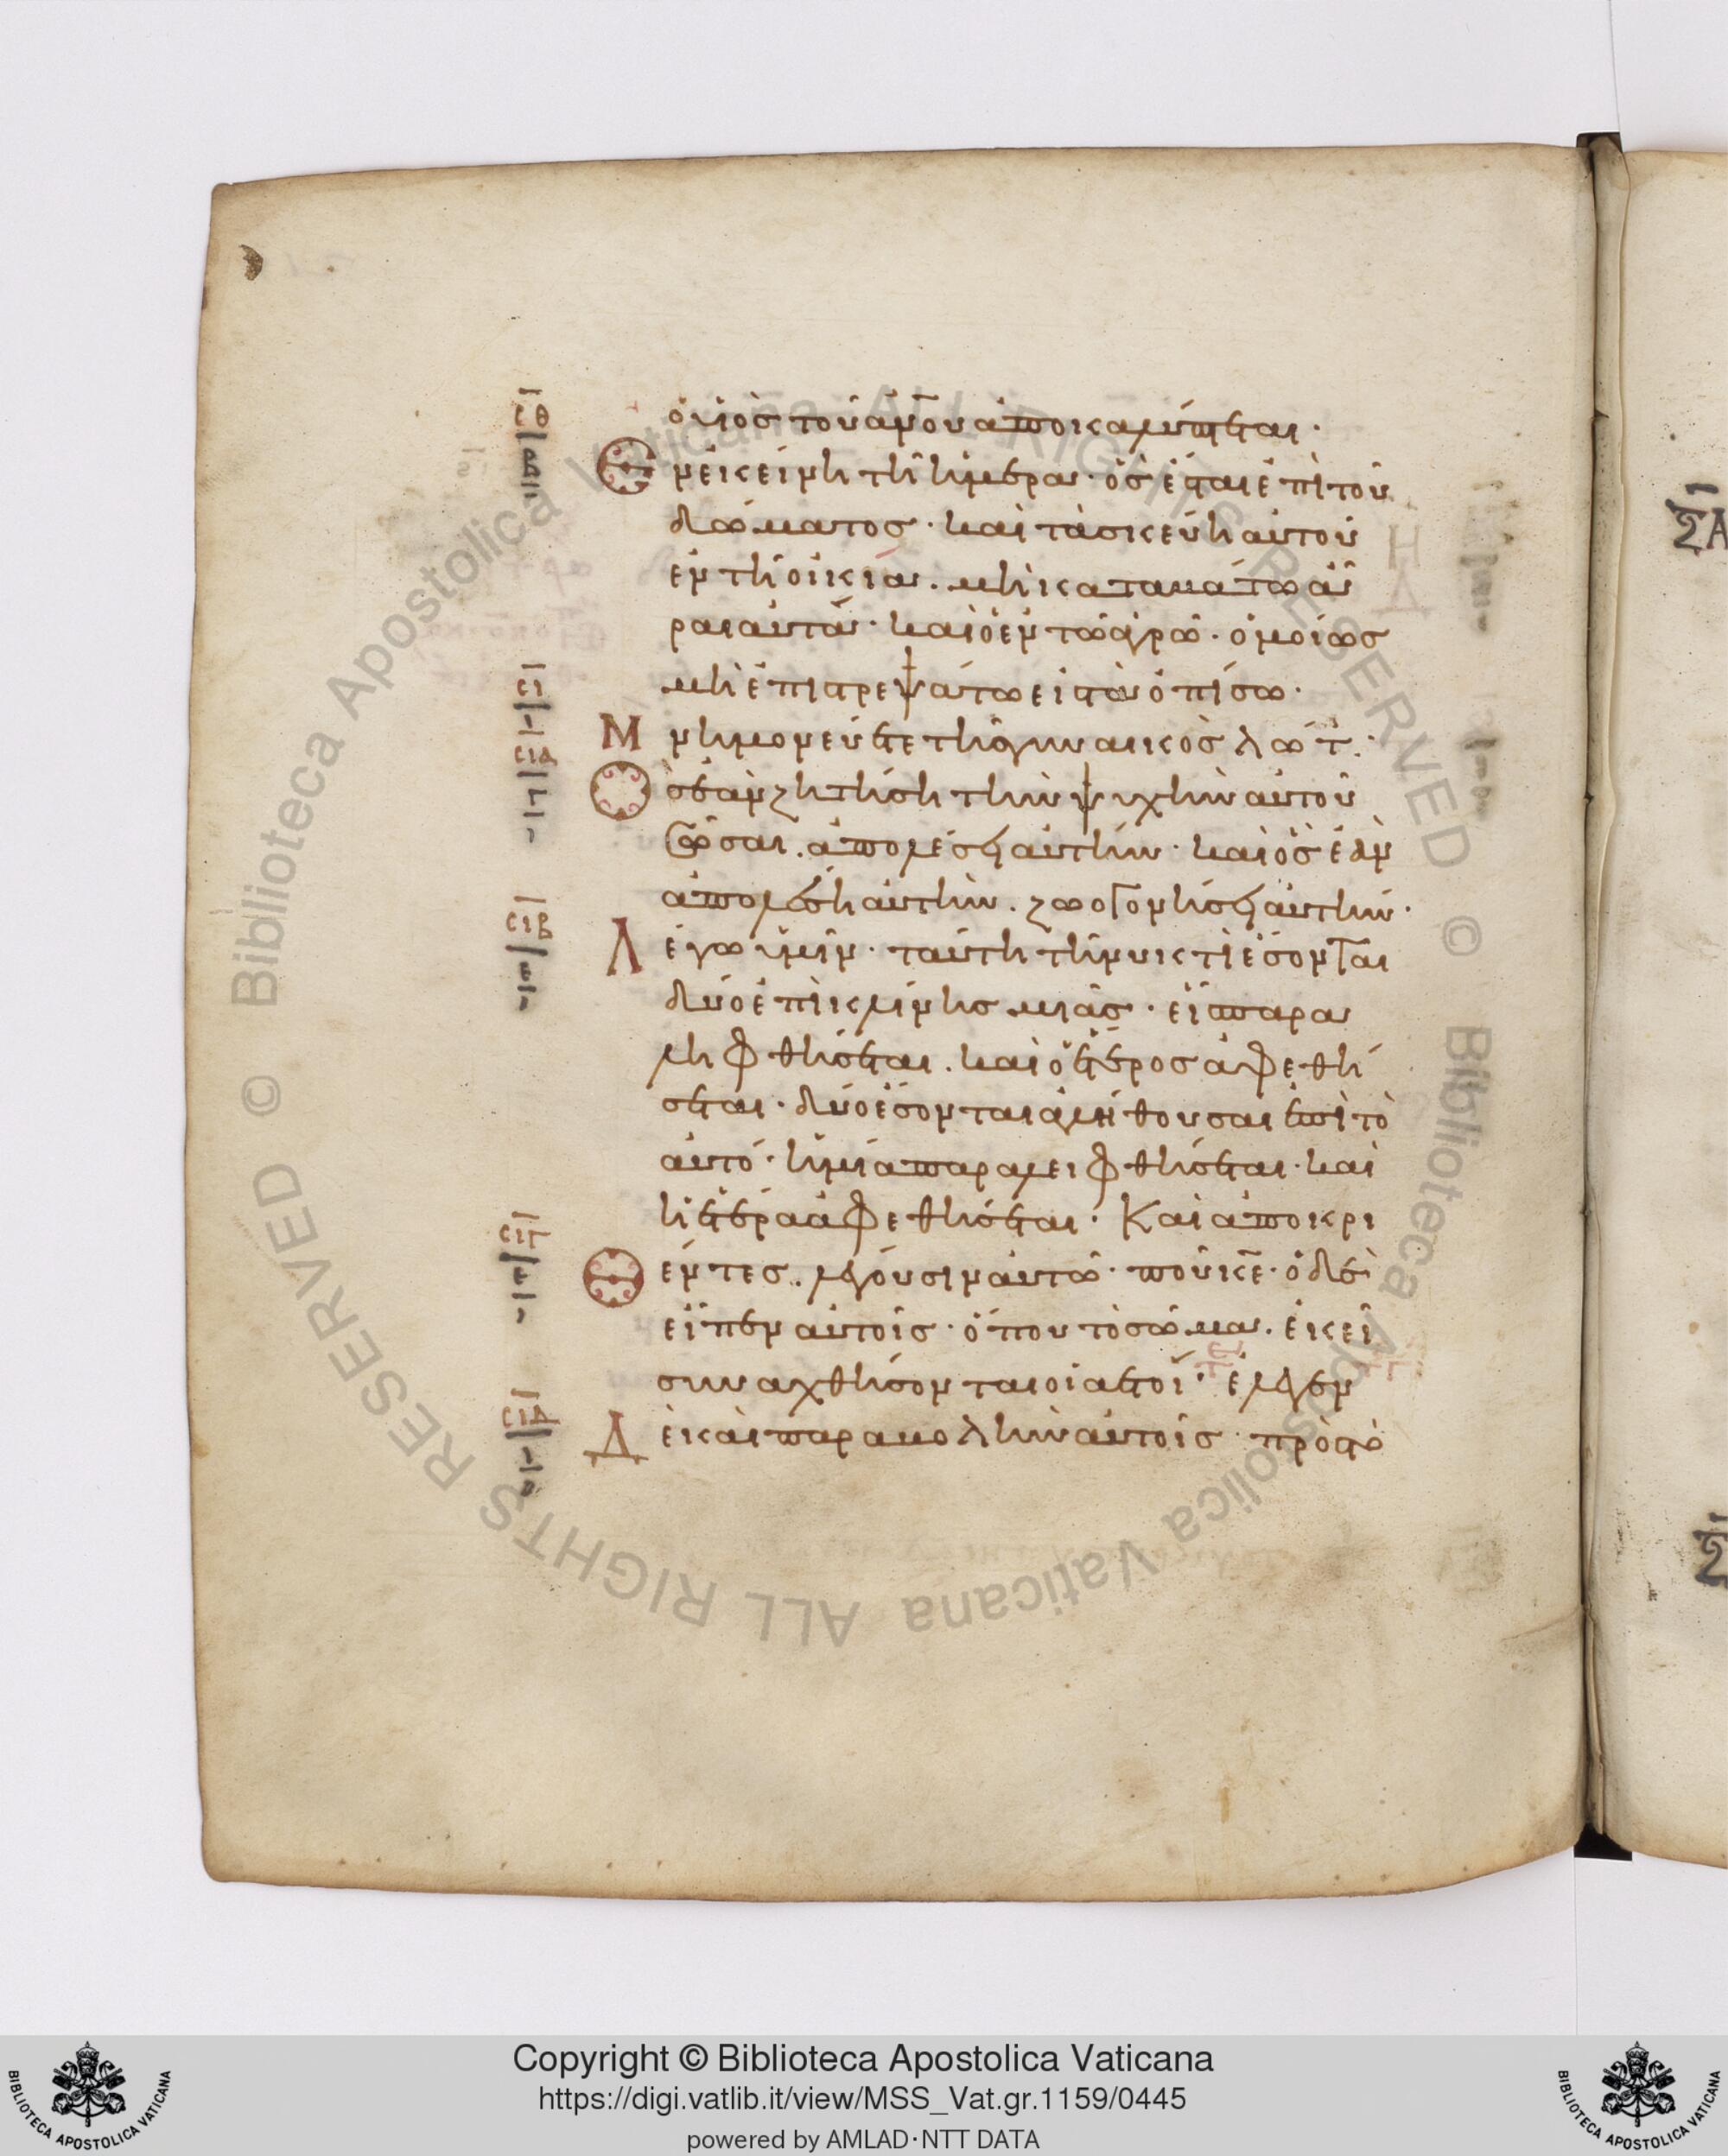 ὁ υἱὸς τοῦ ἀν̅ου ἀποκαλύπτεται·
Ἐν ἐκείνη τῆ ἡμέρα· ὃς ἔσται ἐπὶ τοῦ
δώματος· καὶ τὰ σκεύη αὐτοῦ
ἐν τῆ οἰκία. μὴ καταβάτω ἆ
ραι αὐτά· καὶ ὁ ἐν τῶ ἀγρῶ· ὁμοίως
μὴ ἐπιστρεψάτω εἰς τὰ ὀπίσω·
Μνημονεύετε τῆς γυναικὸς λώτ·
Ὃς ἐὰν ζητήση τὴν ψυχὴν αὐτοῦ
σῶσαι. ἀπολέσει αὐτήν· καὶ ὃς ἐὰν
ἀπολέση αὐτὴν. ζωογονήσει αὐτήν·
Λέγω ὑμῖν· ταύτη τῆ νυκτὶ ἔσονται
δύο ἐπὶ κλίνης μιᾶς· εἷς παρα
ληφθήσεται. καὶ ὁ ἕτερος ἀφεθή
σεται· δύο ἔσονται ἀλήθουσαι ἐπὶ τὸ
αὐτό· ἡ μία παραλειφθήσεται· καὶ
ἡ ἑτέρα ἀφεθήσεται· Καὶ ἀποκρι
Θέντες. λέγουσιν αὐτῶ· ποῦ κ̅ε· ὁ δὲ
εἶπεν αὐτοῖς· ὅπου τὸ σῶμα. ἐκεῖ
συναχθήσονται οἱ ἀετοί· ἔλεγεν
Δὲ καὶ παραβολὴν αὐτοῖς· πρὸς τὸ
σθ
β
σι
ε
σια
γ
σιβ
ε
σιγ
ε
σιδ
ι
Copyright © Biblioteca Apostolica Vaticana
https://digi.vatlib.it/view/MSS_Vat.gr.1159/0445
powered by AMLAD·NTT DATA
BIBLIOTECA APOSTOLICA VATICANA
BIBLIOTECA APOSTOLICA VATICANA
Biblioteca Apostolica Vaticana ALL RIGHTS RESERVED ©
Biblioteca Apostolica Vaticana ALL RIGHTS RESERVED ©